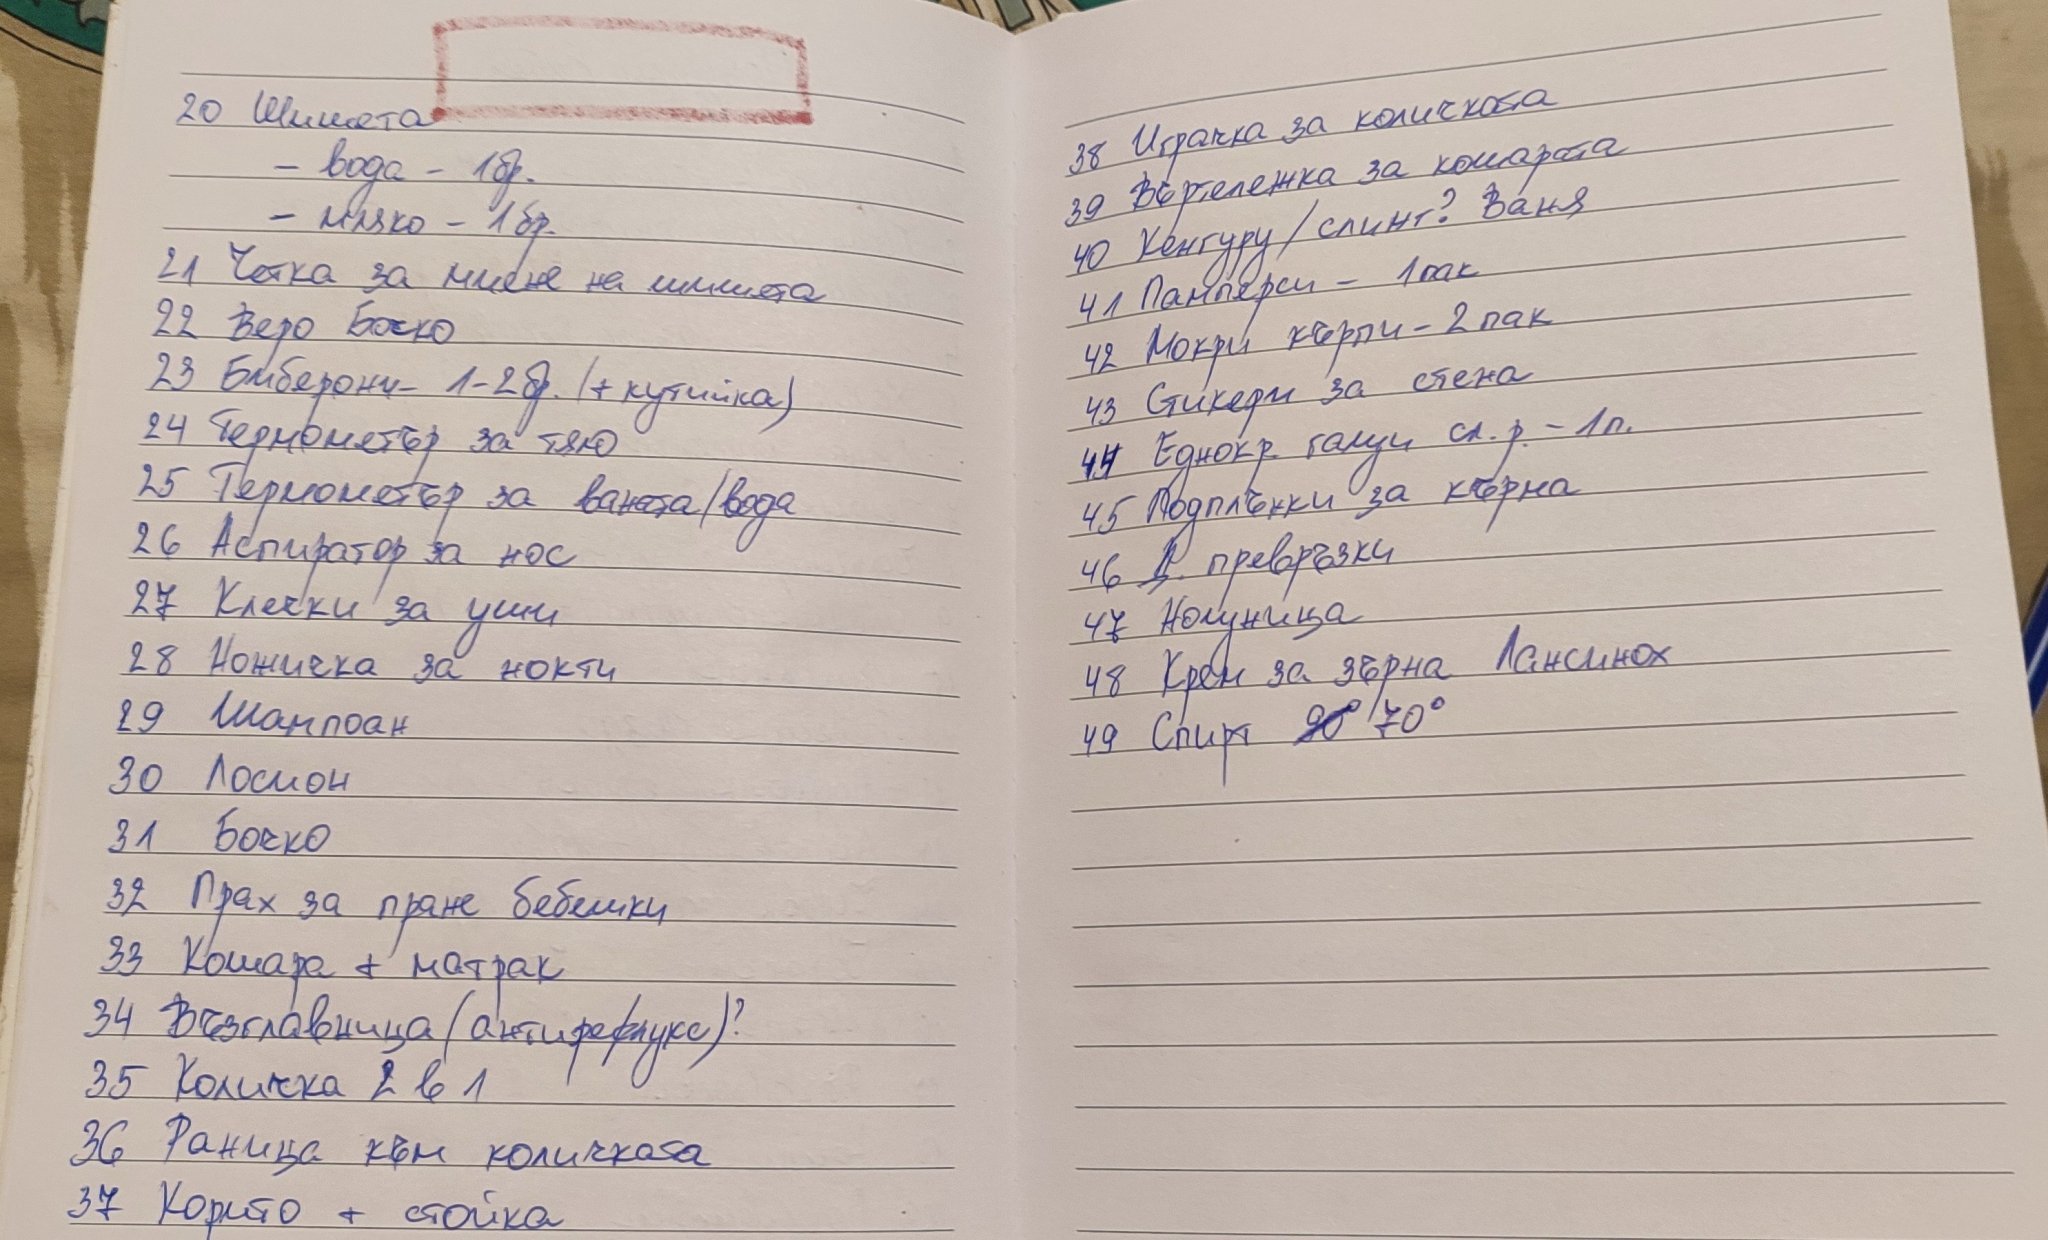 20 Шишета
- вода - 1бр.
- мляко - 1бр.
21 Четка за миене на шишета
22 Веро Бочко
23 Биберони - 1-2бр. (+ кутийка)
24 Термометър за тяло
25 Термометър за ваната/вода
26 Аспиратор за нос
27 Клечки за уши
28 Ножичка за нокти
29 Шампоан
30 Лосион
31 Бочко
32 Прах за пране бебешки
33 Кошара + матрак
34 Възглавница (антирефлукс)?
35 Количка 2 в 1
36 Раница към количката
37 Корито + стойка
38 Играчка за количката
39 Въртележка за кошарата
40 Кенгуру/слинг? Ваня
41 Памперси - 1пак
42 Мокри кърпи - 2 пак
43 Стикери за стена
44 Еднокр. гащи сл. р. - 1п.
45 Подплънки за кърма
46 Д. превръзки
47 Нощница
48 Крем за зърна Лансинох
49 Спирт 90° 70°